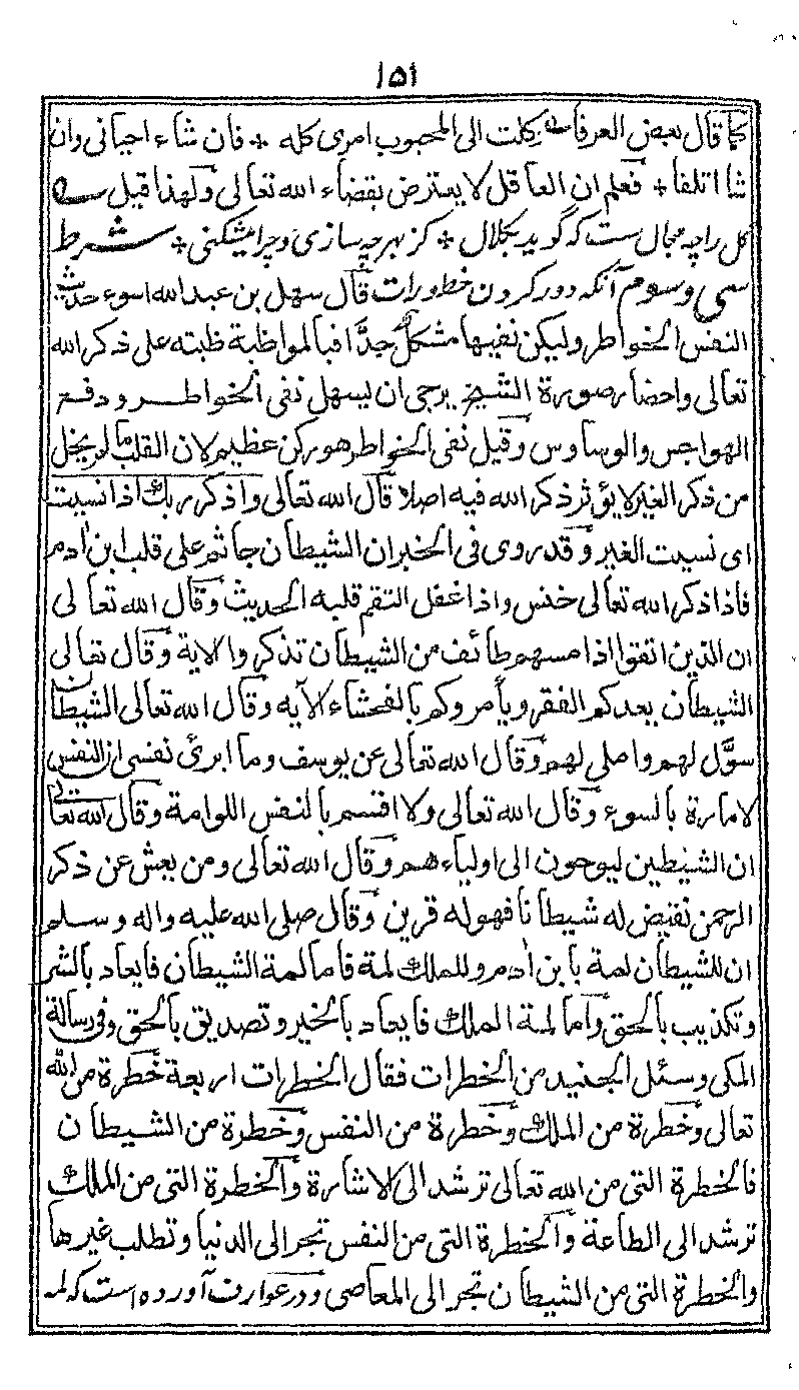 ۱۵۱
کما قال بعض العرفا وکلت الی المحبوب امری کله * فان شاء احیانی وان
شا اتلفا * فعلم ان العاقل لا یعترض بقضاء الله تعالی ولهذا قیل
کل راچه مجال ست که گوید بکلال * کز بهر چه سازی و چرا میشکنی * شرط
سی وسوم آنکه دور کردن خطورات قال سهل بن عبد الله اسوء حدیث
النفس الخواطر ولیکن نفیها مشکل جدّا فبالمواظبة ظبته علی ذکر الله
تعالی واحضار صورة الشیخ یرجی ان یسهل نفی الخواطر و دفع
الهواجس والوساوس وقیل نفی الخواطر هو رکن عظیم لان القلب ما لم یخل
من ذکر الغیر لا یؤثر ذکر الله فیه اصلا قال الله تعالی واذکر ربك اذا نسیت
ای نسیت الغیر وقد روی فی الخبر ان الشیطان جاثم علی قلب ابن ادم
فاذا ذکر الله تعالی خنس واذا غفل التقم قلبه الحدیث وقال الله تعالی
ان الذین اتقوا اذا مسهم طائف من الشیطان تذکروا الایة وقال تعالی
الشیطان یعدکم الفقر ویأمروکم بالفحشاء الآیه وقال الله تعالی الشیطان
سوّل لهم واملی لهم وقال الله تعالی عن یوسف وما ابرئ نفسی ان النفس
لامارة بالسوء وقال الله تعالی ولا اقسم بالنفس اللوامة وقال الله تعالی
ان الشیطین لیوحون الی اولیاءهم وقال الله تعالی ومن یعش عن ذکر
الرحمن نقیض له شیطانا فهو له قرین وقال صلی الله علیه واله وسلم
ان للشیطان لمة بابن ادم وللملك لمة فاما لمة الشیطان فایعاد بالشر
وتکذیب بالحق واما لمة الملك فایعاد بالخیر وتصدیق بالحق وفی رسالة
المکی وسئل الجنید من الخطرات فقال الخطرات اربعة خطرة من الله
تعالی وخطرة من الملك وخطرة من النفس وخطرة من الشیطان
فالخطرة التی من الله تعالی ترشد الی الاشارة والخطرة التی من الملك
ترشد الی الطاعة والخطرة التی من النفس تجر الی الدنیا وتطلب غیرها
والخطرة التی من الشیطان تجر الی المعاصی ودر عوارف آورده است که لمه